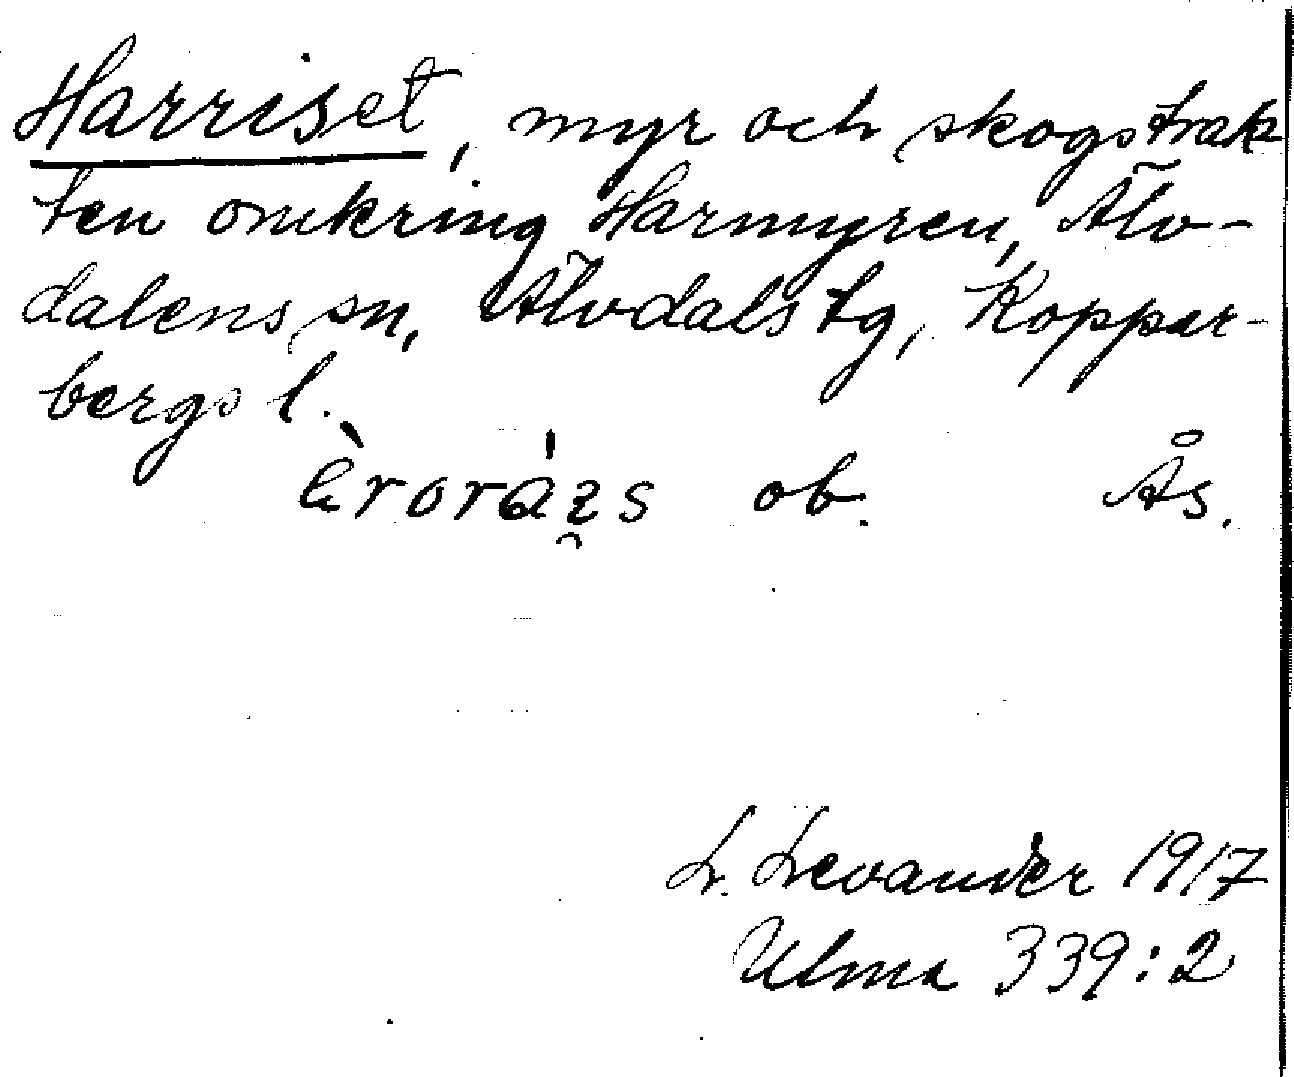 Harriset, myr och skogstrak
ten omkring Harmyren, Älv-
dalens sn, Älvdals tg, Koppar-
bergs l.
ob. Ås.
L. Levander 1917
Ulma 339:2